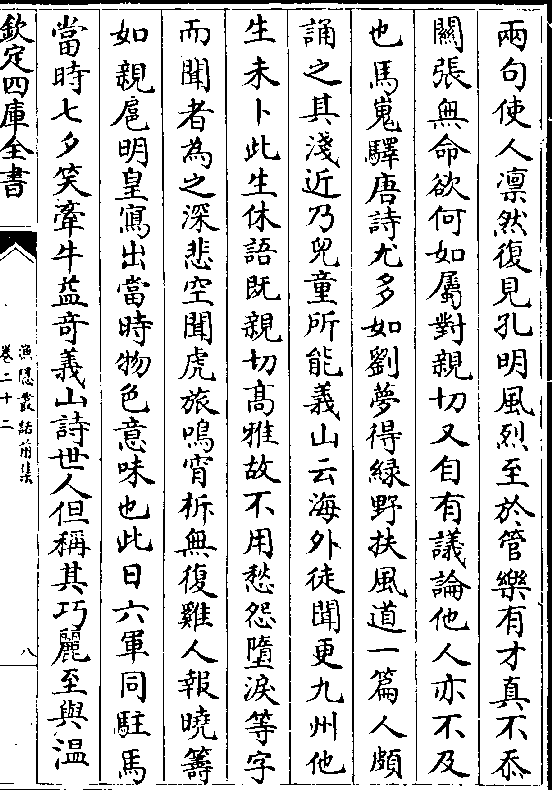 兩句使人凛然復見孔明風烈至於管樂有才真不忝
關張無命欲何如屬對親切又自有議論他人亦不及
也馬嵬驛唐詩尤多如劉夢得綠野扶風道一篇人頗
誦之其淺近乃兒童所能義山云海外徒聞更九州他
生未卜此生休語既親切髙雅故不用愁怨墮淚等字
而聞者為之深悲空聞虎旅鳴宵柝無復雞人報曉籌
如親扈明皇寫出當時物色意味也此日六軍同駐馬
當時七夕笑牽牛益竒義山詩世人但稱其巧麗至與温
欽定四庫全書
漁隠叢話前集
卷二十二
八